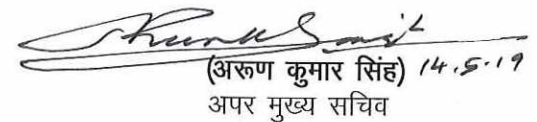 (अरूण कुमार सिंह) 14.5.19
अपर मुख्य सचिव